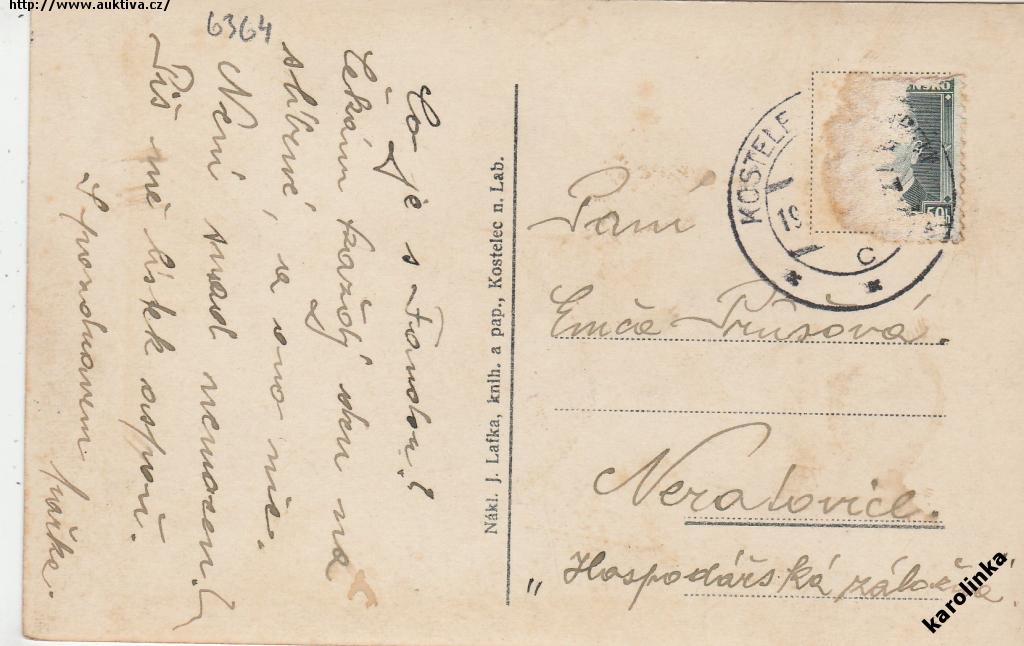 http://www.auktiva.cz/
6364
Co je s Fandou?
Čekám každý den na
slíbené, a ono nic.
Není snad nemocen?
Piš mě lístek aspoň.
S pozdravem
Nákl. J. Lafka, knih. a pap., Kostelec n. Lab.
KOSTELE
19
C
NSKO
50
Paní
Emča Průšová.
Neratovice.
„Hospodářská záložna"
karolinka